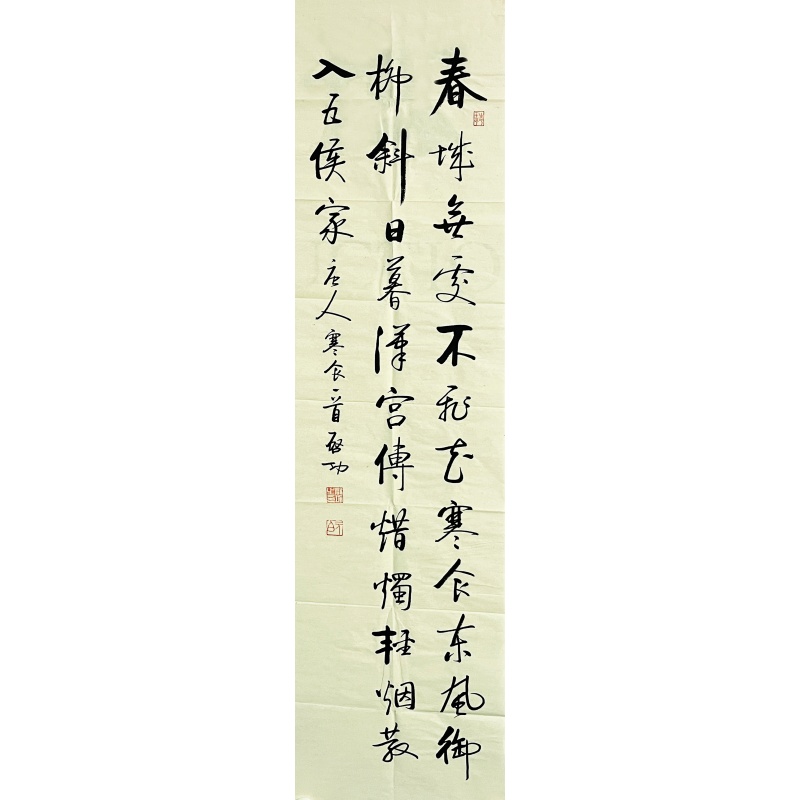 春城無處不飛花寒食東風御
柳斜日暮漢宮傳惜燭輕烟散
入五侯家 唐人寒食一首 啟功